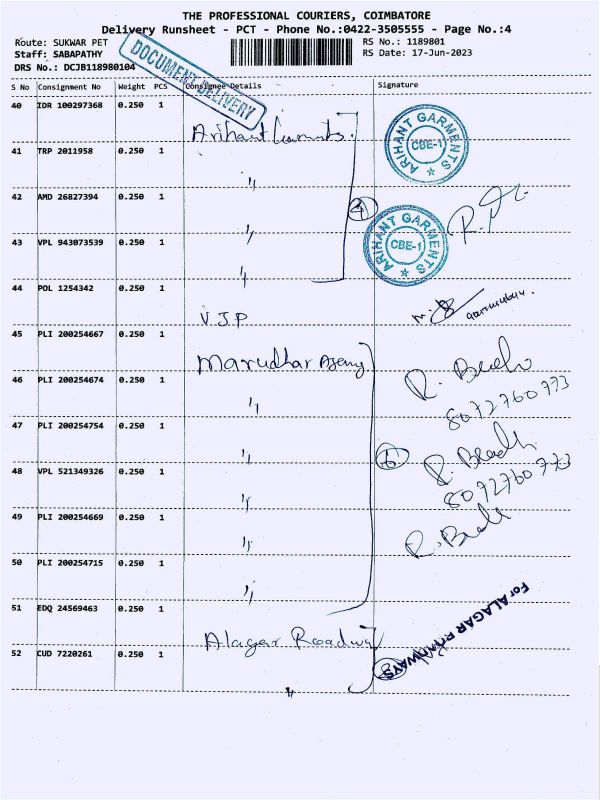 THE PROFESSIONAL COURIERS, COIMBATORE
Delivery Runsheet - PCT - Phone No.:0422-3505555 - Page No.:4
Route: SUKWAR PET
RS No.: 1189801
Staff: SABAPATHY
RS Date: 17-Jun-2023
DRS No.: DCJB118980104
DOCUMENT DELIVERY
S No Consignment No Weight PCS Consignee Details Signature
40 IDR 100297368 0.250 1 Arihant Garments.
ARIHANT GARMENTS CBE-1
41 TRP 2011958 0.250 1 "
42 AMD 26827394 0.250 1 "
4
ARIHANT GARMENTS CBE-1
43 VPL 943073539 0.250 1 "
44 POL 1254342 0.250 1 V J P
45 PLI 200254667 0.250 1 Marudhar Agency
46 PLI 200254674 0.250 1 "
8072760773
47 PLI 200254754 0.250 1 "
6
48 VPL 521349326 0.250 1 "
8072760773
49 PLI 200254669 0.250 1 "
50 PLI 200254715 0.250 1 "
51 EDQ 24569463 0.250 1 Alagar Roadway
For ALAGAR ROADWAYS
52 CUD 7220261 0.250 1 "